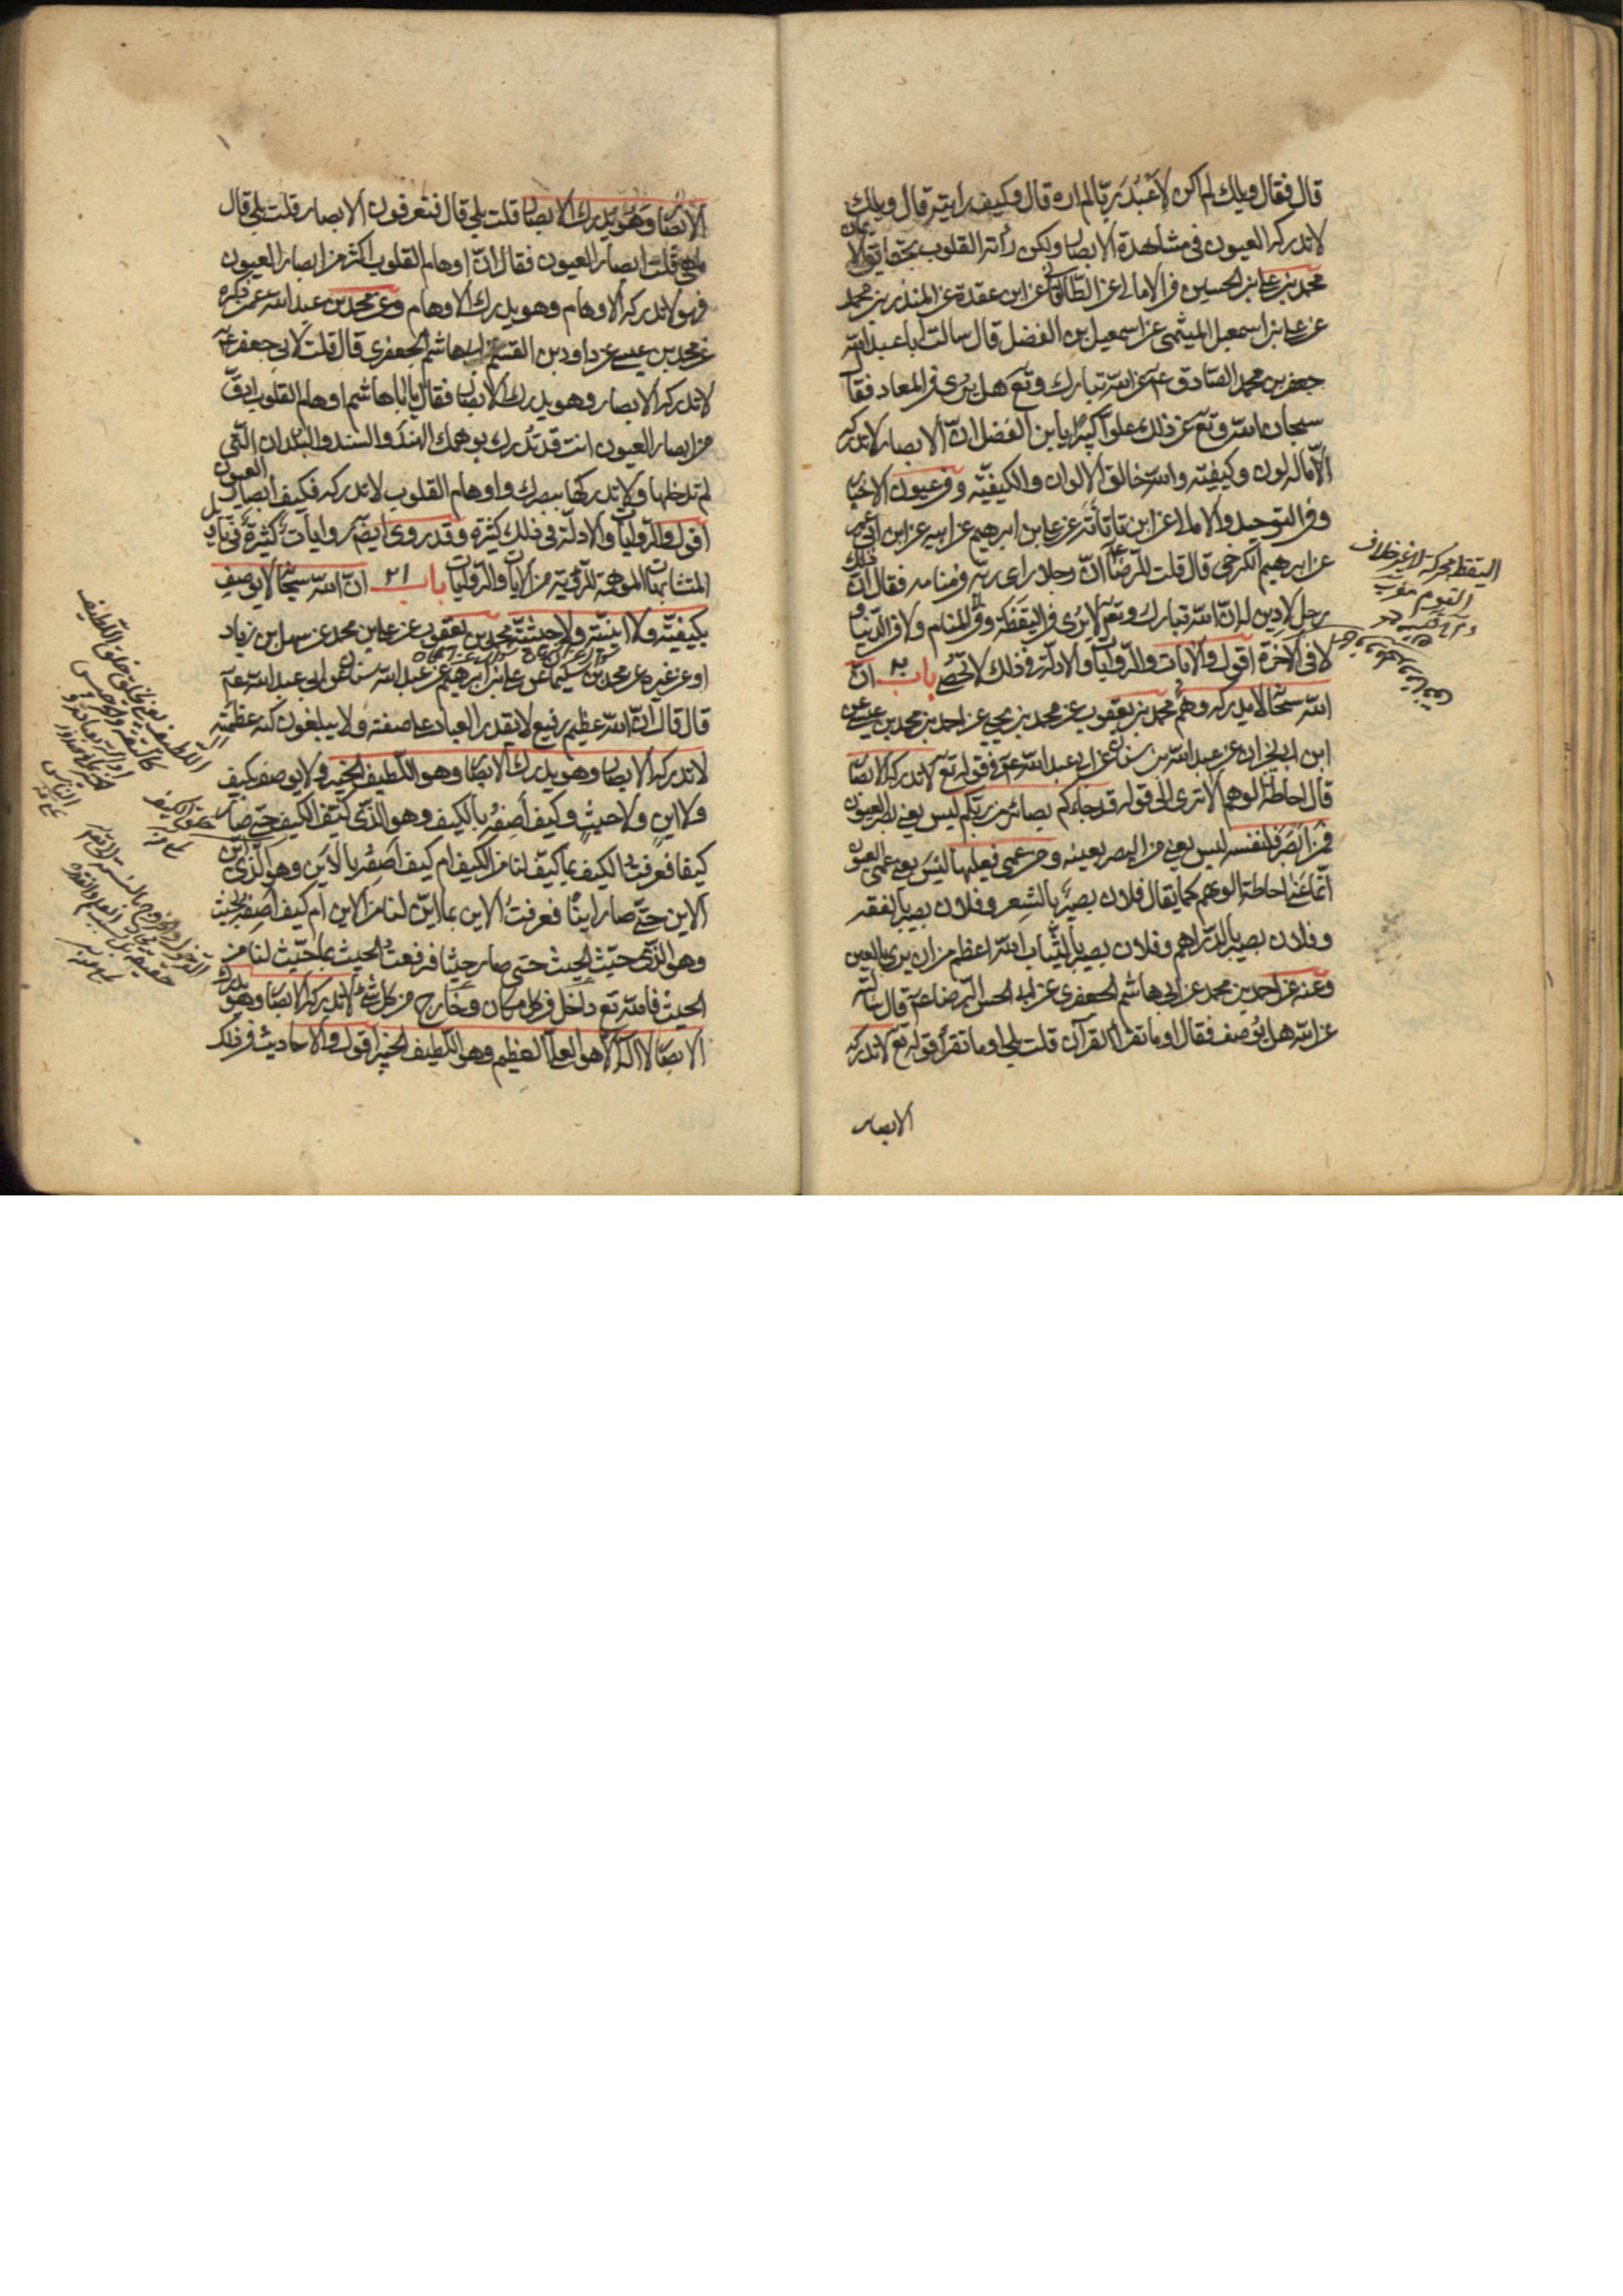 قال فقال ويلك لم اكن لاعبد ربا لم اره قال وكيف رايته قال ويلك
لا تدركه العيون فى مشاهدة الابصار ولكن رأته القلوب بحقايق الايمان
محمد بن على بن الحسين فى الامالى عن الطالقانى عن ابن عقدة عن المنذر بن محمد
عن على بن اسمعيل الميثمى عن اسمعيل بن الفضل قال سالت ابا عبد الله
جعفر بن محمد الصادق عن الله تبارك وتع هل يرى فى المعاد فقال
سبحان الله وتع عن ذلك علوا كبيرا يا بن الفضل ان الابصار لا تدرك
الا ما له لون وكيفيته والله خالق الالوان والكيفيّة وفى عيون الاخبار
وفى التوحيد والامالى عن ابن تاتانه عن على بن ابرهيم عن ابيه عن ابن ابى عمير
عن ابرهيم الكرخى قال قلت للرضا ان رجلا راى ربه فى منامه فقال ان ذلك
رجل لا دين له ان الله تبارك وتع لا يرى فى اليقظة وفى المنام ولا فى الدنيا و
لا فى الآخرة اقول والايات والروايات والادلة فى ذلك لا تحصى باب ٢٠ ان
الله سبحانه لا يدركه وهم محمد بن يعقوب عن محمد بن يحيى عن احمد بن محمد بن عيسى عن
ابن ابى نجران عن عبد الله بن سنان عن ابى عبد الله فى قوله تع لا تدركه الابصار
قال احاطة الوهم الا ترى الى قوله قد جاءكم بصائر من ربكم ليس يعنى بصر العيون
فمن ابصر فلنفسه ليس يعنى من البصر بعينه ومن عمى فعليها ليس يعنى عمى العيون
انما عنى احاطة الوهم كما يقال فلان بصير بالشعر وفلان بصير بالفقه
وفلان بصير بالدراهم وفلان بصير بالثياب الله اعظم من ان يرى بالعين
وعنه عن احمد بن محمد عن ابى هاشم الجعفرى عن ابى الحسن الرضا قال سالته
عن الله هل يوصف فقال اوما تقرا القرآن قلت بلى اوما تقرأ قوله تع لا تدركه
الابصار
اليقظة محركة
خلاف النوم
الابصار وهو يدرك الابصار قلت بلى قال فتعرفون الابصار قلت بلى قال
ما هى قلت ابصار العيون فقال ان اوهام القلوب اكثر من ابصار العيون
فهو لا تدركه الاوهام وهو يدرك الاوهام وعن محمد بن عبد الله عمن ذكره
عن محمد بن عيسى عن داود بن القسم ابى هاشم الجعفرى قال قلت لابى جعفر
لا تدركه الابصار وهو يدرك الابصار فقال يا ابا هاشم اوهام القلوب ادق
من ابصار العيون انت قد تدرك بوهمك الهند والسند والبلدان التى
لم تدخلها ولا تدركها ببصرك واوهام القلوب لا تدركه فكيف ابصار العيون
اقول والروايات والادلة فى ذلك كثيرة وقد روى ايضا روايات كثيرة فى تاويل
المتشابهات الموهمة للرؤية من الآيات والروايات باب ٢١ ان الله سبحانه لا يوصف
بكيفيّة ولا اينيّة ولا حيثيّة محمد بن يعقوب عن على بن محمد عن سهل بن زياد
او عن غيره عن محمد بن سليمان عن على بن ابرهيم عن عبد الله بن سنان عن ابى عبد الله
قال قال ان الله عظيم رفيع لا يقدر العباد على صفته ولا يبلغون كنه عظمته
لا تدركه الابصار وهو يدرك الابصار وهو اللطيف الخبير ولا يوصف بكيف
ولا اين ولا حيث وكيف أصفه بالكيف وهو الذى كيّف الكيف حتى صار
كيفا فعرفت الكيف بما كيّف لنا من الكيف ام كيف اصفه بالاين وهو الذى اين
الاين حتى صار اينا فعرفت الاين بما اين لنا من الاين ام كيف اصفه بحيث
وهو الذى حيّث الحيث حتى صار حيثا فعرفت الحيث بما حيّث لنا من
الحيث فالله تع داخل فى كل مكان وخارج من كل شئ لا تدركه الابصار وهو يدرك
الابصار لا اله الا هو العلى العظيم وهو اللطيف الخبير اقول والاحاديث فى ذلك